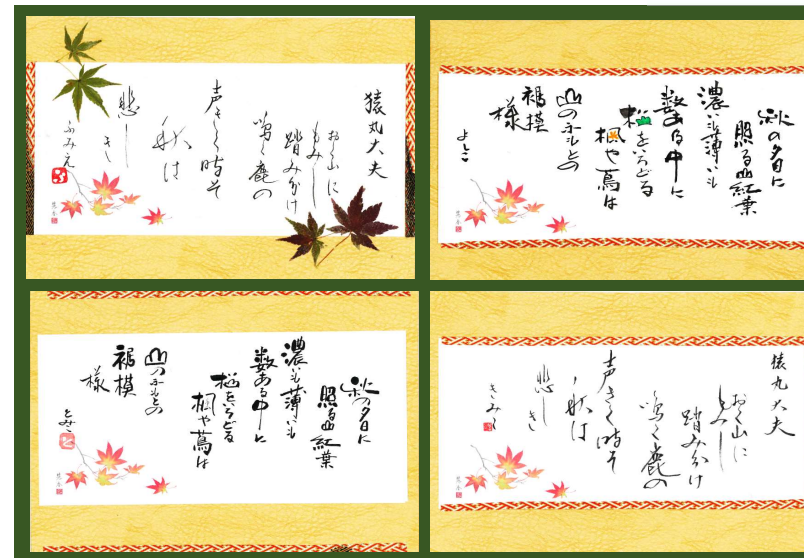 猿丸大夫
おく山に
もみし
踏みわけ
鳴く鹿の
声きく時そ
秋は
悲し
き
ふみえ
秋の夕日に
照る山紅葉
濃いも薄いも
数ある中に
松をいろどる
楓や蔦は
山のふもとの
裾模
様
よしこ
秋の夕日に
照る山紅葉
濃いも薄いも
数ある中に
松をいろどる
楓や蔦は
山のふもとの
裾模
様
猿丸大夫
おく山に
もみし
踏みわけ
鳴く鹿の
声きく時そ
秋は
悲し
き